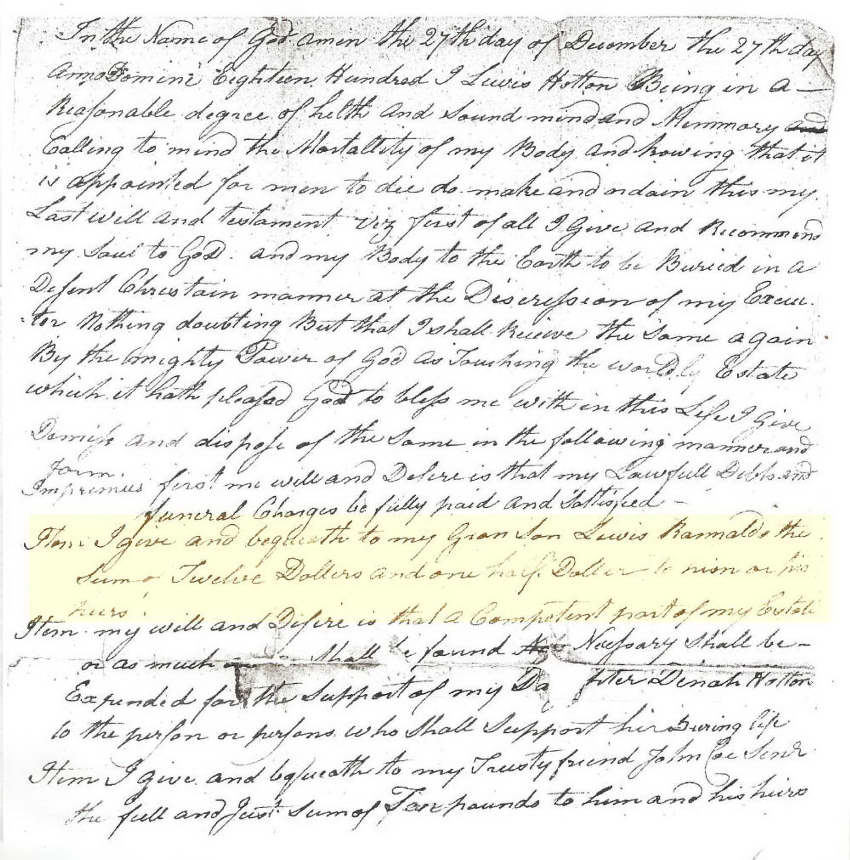 In the Name of God amen the 27th day of December the 27th day
Anno Domini Eighteen Hundred I Lewis Hotton Being in a
Reasonable degree of helth and Sound mind and Memmory and
Calling to mind the Mortallity of my Body and knowing that it
is appointed for men to die do make and ordain this my
Last will and testament viz first of all I Give and Recommend
my Soul to God and my Body to the Earth to be Buried in a
Desent Christain manner at the Discression of my Execu
tor Nothing doubting But that I shall Receive the Same again
By the mighty Power of God as Touching the wordly Estate
which it hath pleased God to bless me with in this Life I Give
Demiss and dispose of the Same in the following manner and
form.
Impremus first me will and Desire is that my Lawfull Debts and
funeral Charges be fully paid and Sattisfied
Item I give and bequeath to my Gran Son Lewis Rannalds the
Sum of Twelve Dollers and one half Doller to him or his
heirs
Item my will and Desire is that a Competent part of my Estate
or as much Shall be found Necessary Shall be
Expended for the Support of my Da fiter Dinah Hotton
to the person or persons who Shall Support her During life
Item I give and bequeath to my Trusty friend John Coe Senr
the full and Just Sum of Ten pounds to him and his heirs